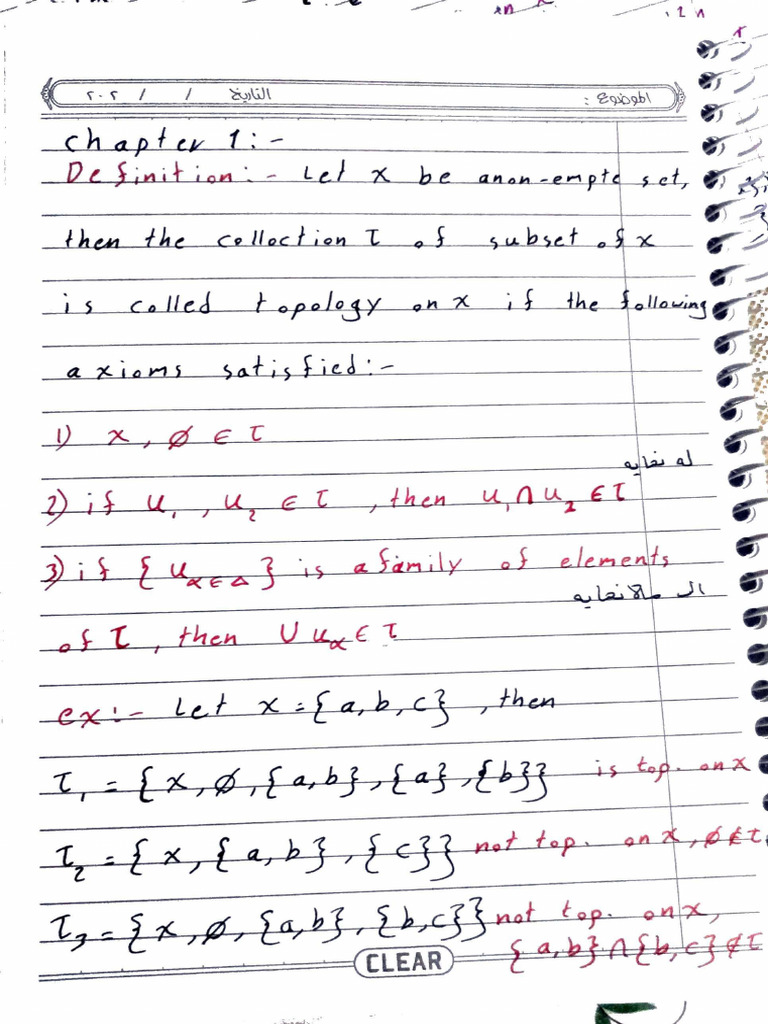 الموضوع : التاريخ / / ٢٠٢
chapter 1:-
Definition:- Let x be anon-empte set,
then the collection τ of subset of x
is called topology on x if the following
axioms satisfied:-
1) x, ∅ ∈ τ
له نهايه
2) if u₁, u₂ ∈ τ, then u₁ ∩ u₂ ∈ τ
3) if {u_α∈Δ} is a family of elements
of τ, then ∪ u_α ∈ τ
ex:- Let x = {a, b, c}, then
τ₁ = {x, ∅, {a, b}, {a}, {b}} is top. on x
τ₂ = {x, {a, b}, {c}} not top. on x, ∅ ∉ τ
τ₃ = {x, ∅, {a, b}, {b, c}} not top. on x,
{a, b} ∩ {b, c} ∉ τ
CLEAR